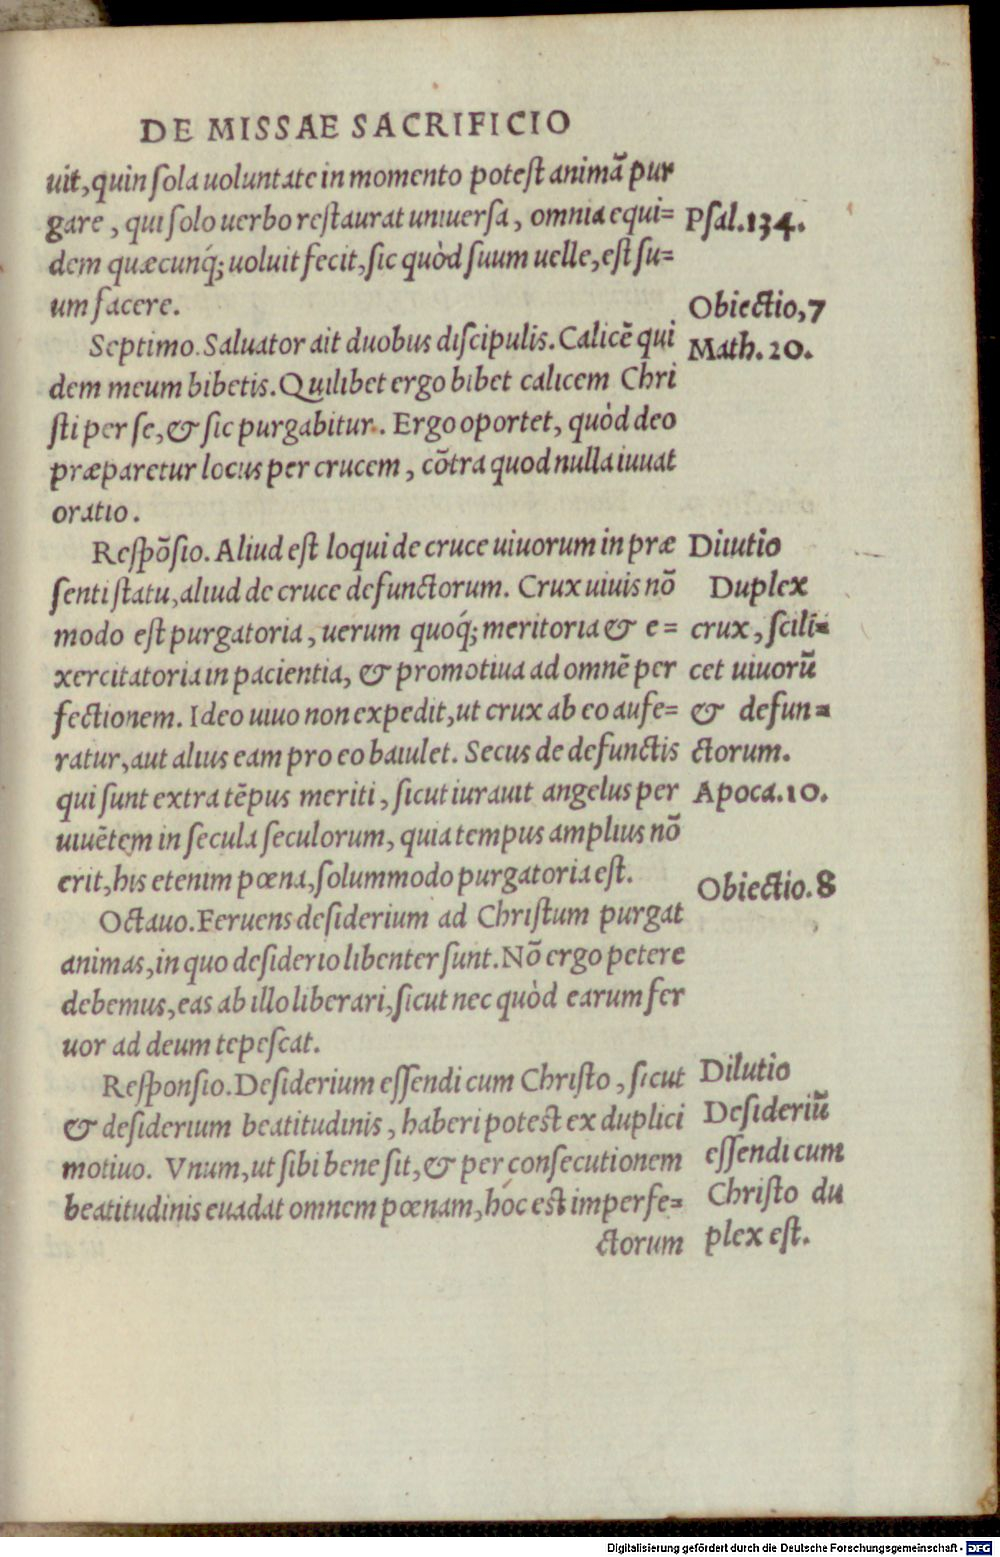 DE MISSAE SACRIFICIO
uit, quin sola uoluntate in momento potest animã pur
gare, qui solo uerbo restaurat uniuersa, omnia equi=
dem quæcunq́; uoluit fecit, sic quòd suum uelle, est su=
um facere.
Septimo. Saluator ait duobus discipulis. Calicẽ qui
dem meum bibetis. Quilibet ergo bibet calicem Chri
sti per se, & sic purgabitur. Ergo oportet, quòd deo
præparetur locus per crucem, cõtra quod nulla iuuat
oratio.
Respõsio. Aliud est loqui de cruce uiuorum in præ
senti statu, aliud de cruce defunctorum. Crux uiuis nõ
modo est purgatoria, uerum quoq́; meritoria & e=
xercitatoria in pacientia, & promotiua ad omnẽ per
fectionem. Ideo uiuo non expedit, ut crux ab eo aufe=
ratur, aut alius eam pro eo baiulet. Secus de defunctis
qui sunt extra tẽpus meriti, sicut iurauit angelus per
uiuẽtem in secula seculorum, quia tempus amplius nõ
erit, his etenim pœna, solummodo purgatoria est.
Octauo. Feruens desiderium ad Christum purgat
animas, in quo desiderio libenter sunt. Nõ ergo petere
debemus, eas ab illo liberari, sicut nec quòd earum fer
uor ad deum tepescat.
Responsio. Desiderium essendi cum Christo, sicut
& desiderium beatitudinis, haberi potest ex duplici
motiuo. Vnum, ut sibi bene sit, & per consecutionem
beatitudinis euadat omnem pœnam, hóc est imperfe=
ctorum
Psal. 134.
Obiectio, 7
Math. 20.
Diiutio
Duplex
crux, scili=
cet uiuorũ
& defun=
ctorum.
Apoca. 10.
Obiectio. 8
Dilutio
Desideriũ
essendi cum
Christo du
plex est.
Digitalisierung gefördert durch die Deutsche Forschungsgemeinschaft - DFG